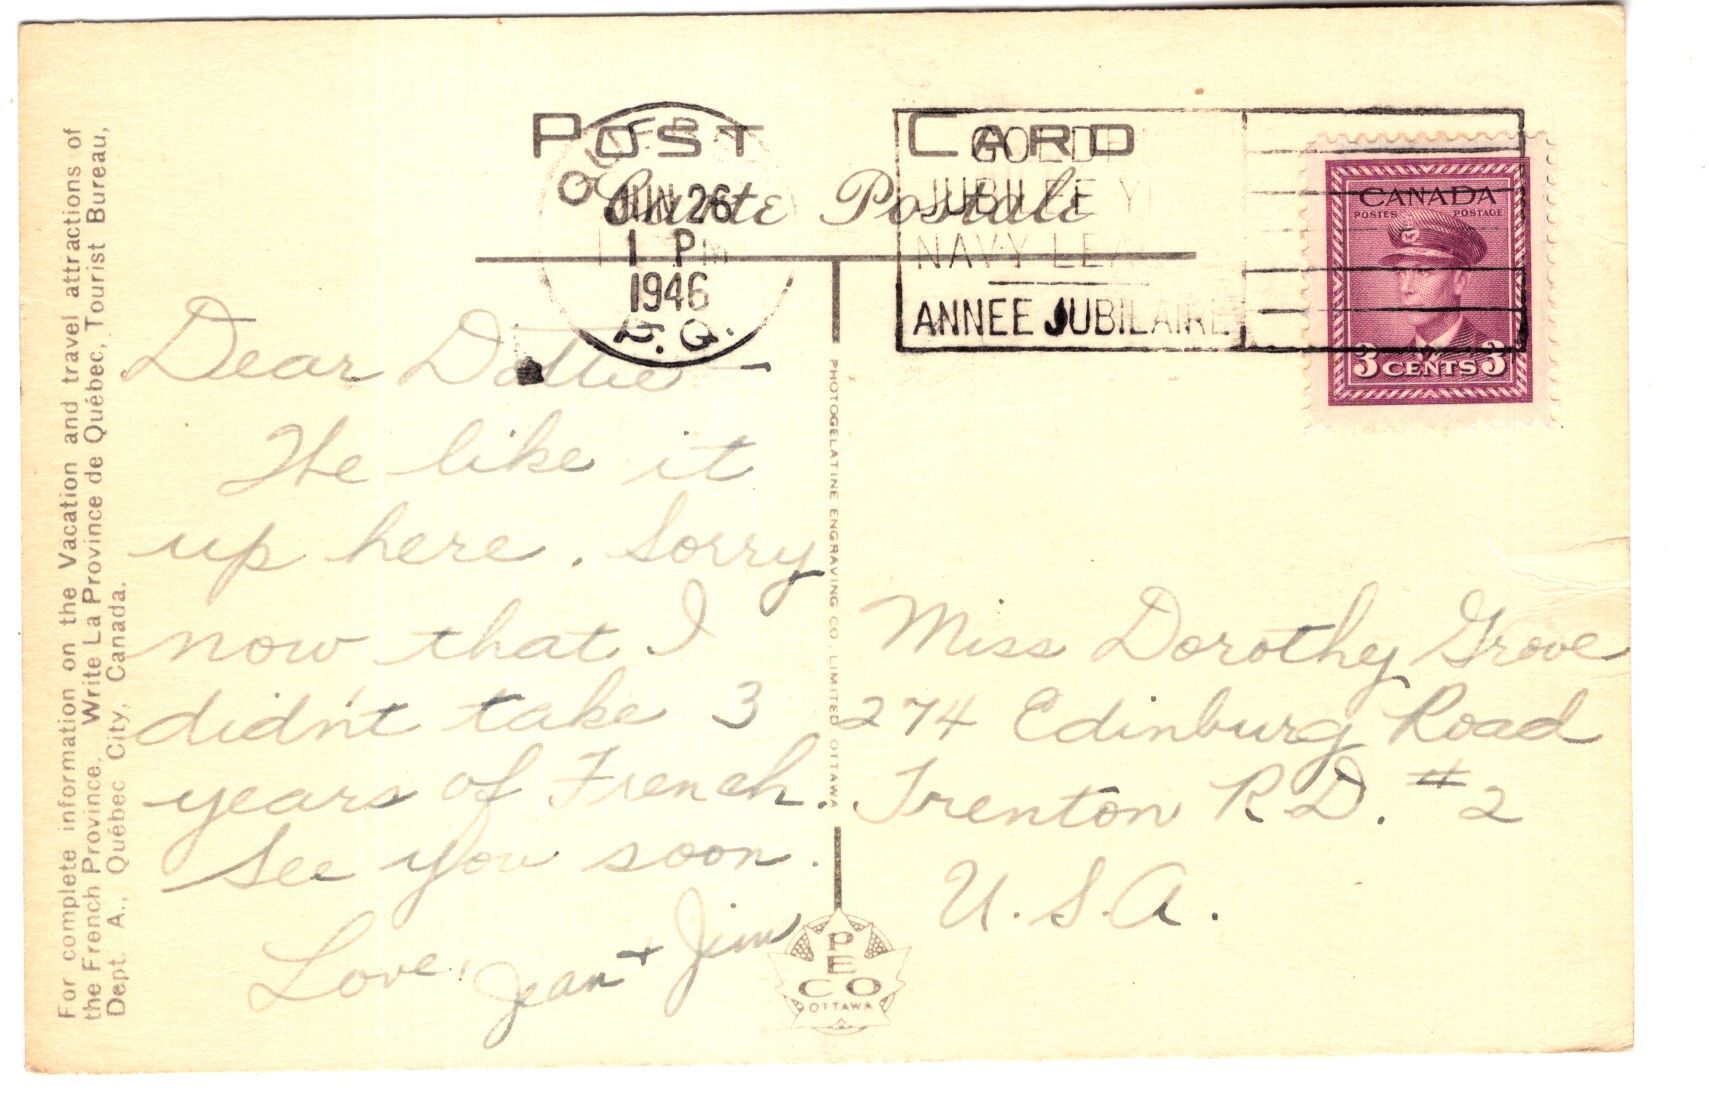 For complete information on the Vacation and travel attractions of
the French Province, Write La Province de Québec, Tourist Bureau,
Dept. A., Québec City, Canada.
POST CARD
Carte Postale
JUN 26
1 PM
1946
P.Q.
GOLDEN
JUBILEE
NAVY LEAGUE
ANNEE JUBILAIRE
CANADA
POSTES POSTAGE
3 CENTS 3
Dear Dottie —
We like it
up here. Sorry
now that I
didn't take 3
years of French.
See you soon.
Love,
Jean + Jim
PHOTOGELATINE ENGRAVING CO. LIMITED OTTAWA
Miss Dorothy Grove
274 Edinburg Road
Trenton R.D. #2
U.S.A.
PECO
OTTAWA